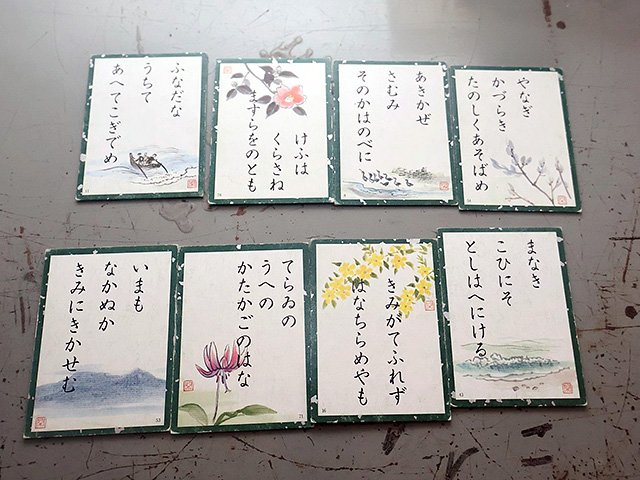 やなぎ
かづらき
たのしくあそばめ
あきかぜ
さむみ
そのかはのべに
けふは
くらさね
ますらをのとも
ふなだな
うちて
あへてこぎでめ
まなき
こひにそ
としはへにける
きみがてふれず
はなちらめやも
てらゐの
うへの
かたかごのはな
いまも
なかぬか
きみにきかせむ